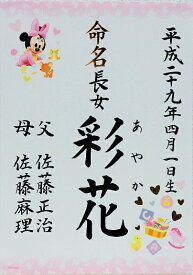 平成二十九年四月一日生
命名
長女
彩花
あやか
父 佐藤正治
母 佐藤麻理